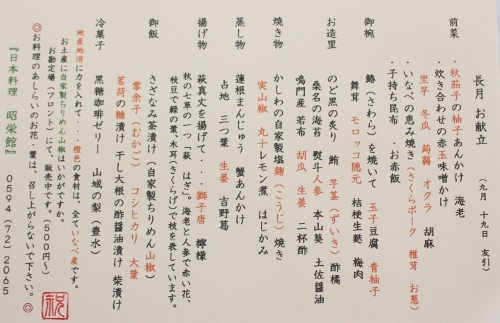 長月 お献立
(九月 十九日 友引)
前菜
・秋茄子の柚子あんかけ 海老
・炊き合わせの赤玉味噌かけ
里芋 冬瓜 蒟蒻 オクラ 胡麻
・いなべの恵み焼き(さくらポーク 椎茸 お葱)
・子持ち昆布 ・お赤飯
御椀
鰆(さわら)を焼いて 玉子豆腐 青柚子
舞茸 モロッコ隠元 桔梗生麩 梅肉
お造里
のど黒の炙り 鮪 芋茎(ずいき) 酢橘
桑名の海苔 熨斗人参 本山葵 土佐醤油
鳴門産 若布 胡瓜 生姜 二杯酢
焼き物
かしわの自家製塩麹(こうじ)焼き
実山椒 丸十レモン煮 はじかみ
蒸し物
蓮根まんじゅう 蟹あんかけ
占地 三つ葉 生姜 吉野葛
揚げ物
萩真丈を揚げて・・・獅子唐 檸檬
秋の七草の一つ「萩 はぎ」。海老と人参で赤い花、
枝豆で緑の葉、木耳(きくらげ)で枝を表しています。
御飯
さざなみ茶漬け(自家製ちりめん山椒)
零余子(むかご) コシヒカリ 大葉
茗荷の糠漬け 干し大根の酢醤油漬け 柴漬け
冷菓子
黒糖珈琲ゼリー 山城の梨(豊水)
地産地消に力を入れて・・・橙色の食材は、全ていなべ産です。
お土産に自家製ちりめん山椒はいかがですか。
お勘定場(フロント)にて、販売中です。(500円〜)
◎お料理のあしらいのお花・葉は、召し上がらないで下さい。◎
『日本料理 昭栄館』 0594(72)2065
祝